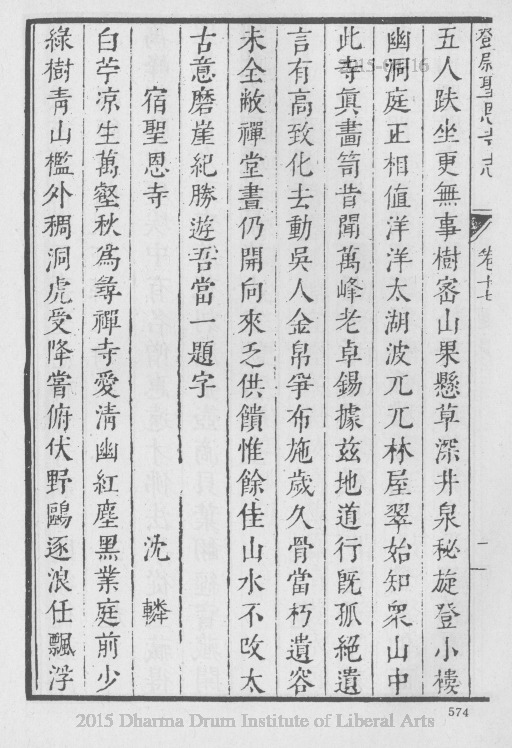 鄧尉聖恩寺志 卷十七 一
五人趺坐更無事樹密山果懸草深井泉秘旋登小樓
幽洞庭正相值洋洋太湖波兀兀林屋翠始知眾山中
此寺眞畵笥昔聞萬峰老卓錫據茲地道行旣孤絕遺
言有高致化去動吳人金帛爭布施歲久骨當朽遺容
未全敝禪堂晝仍開向來乏供饋惟餘佳山水不改太
古意磨崖紀勝遊吾當一題字
宿聖恩寺 沈 轔
白苧凉生萬壑秋爲尋禪寺愛淸幽紅塵黑業庭前少
綠樹靑山檻外稠洞虎受降嘗俯伏野鷗逐浪任飄浮
574
2015 Dharma Drum Institute of Liberal Arts